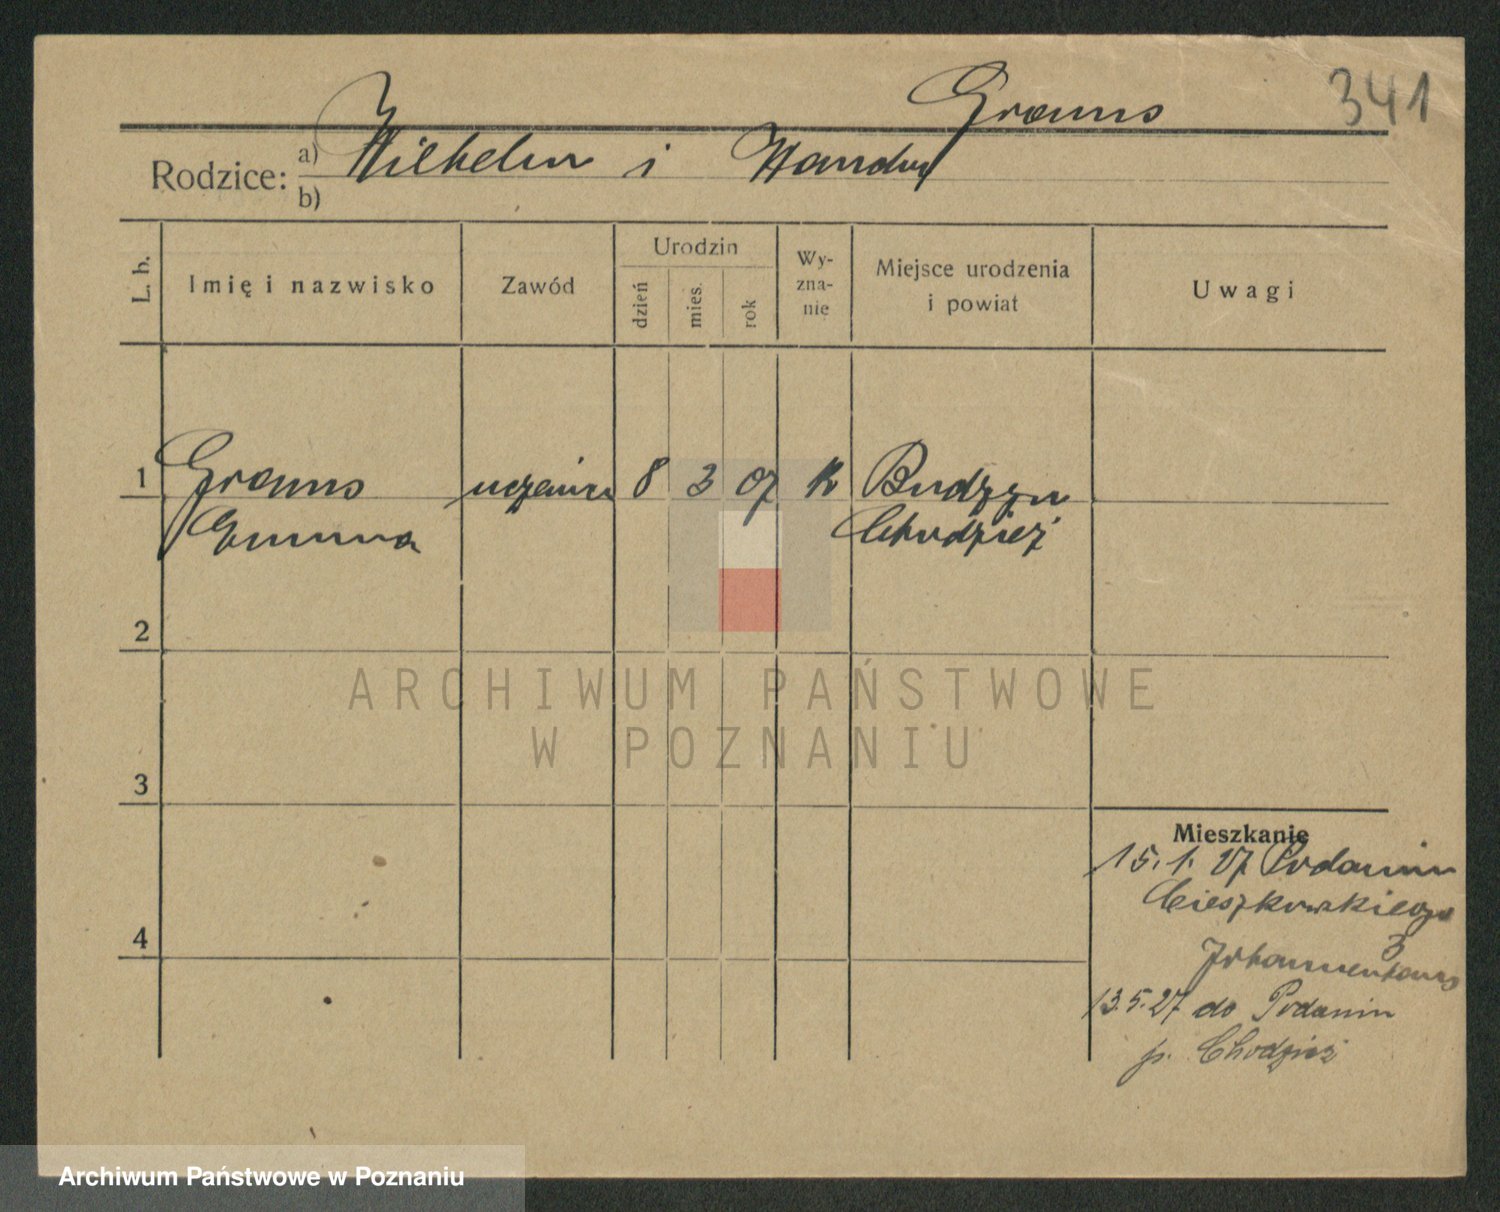 341
Grams
Rodzice: a) Wilhelm i Wandy
b)
L. b. Imię i nazwisko Zawód Urodzin dzień mies. rok Wyznanie Miejsce urodzenia i powiat Uwagi
1 Grams uczenica 8 3 07 k Budzyn
Emma Chodzież
2
ARCHIWUM PAŃSTWOWE
W POZNANIU
3
Mieszkanie
15. 1. 27 Podanin
Cieszkowskiego
3
4
13.5.27 do Podanin
p. Chodzież
Archiwum Państwowe w Poznaniu